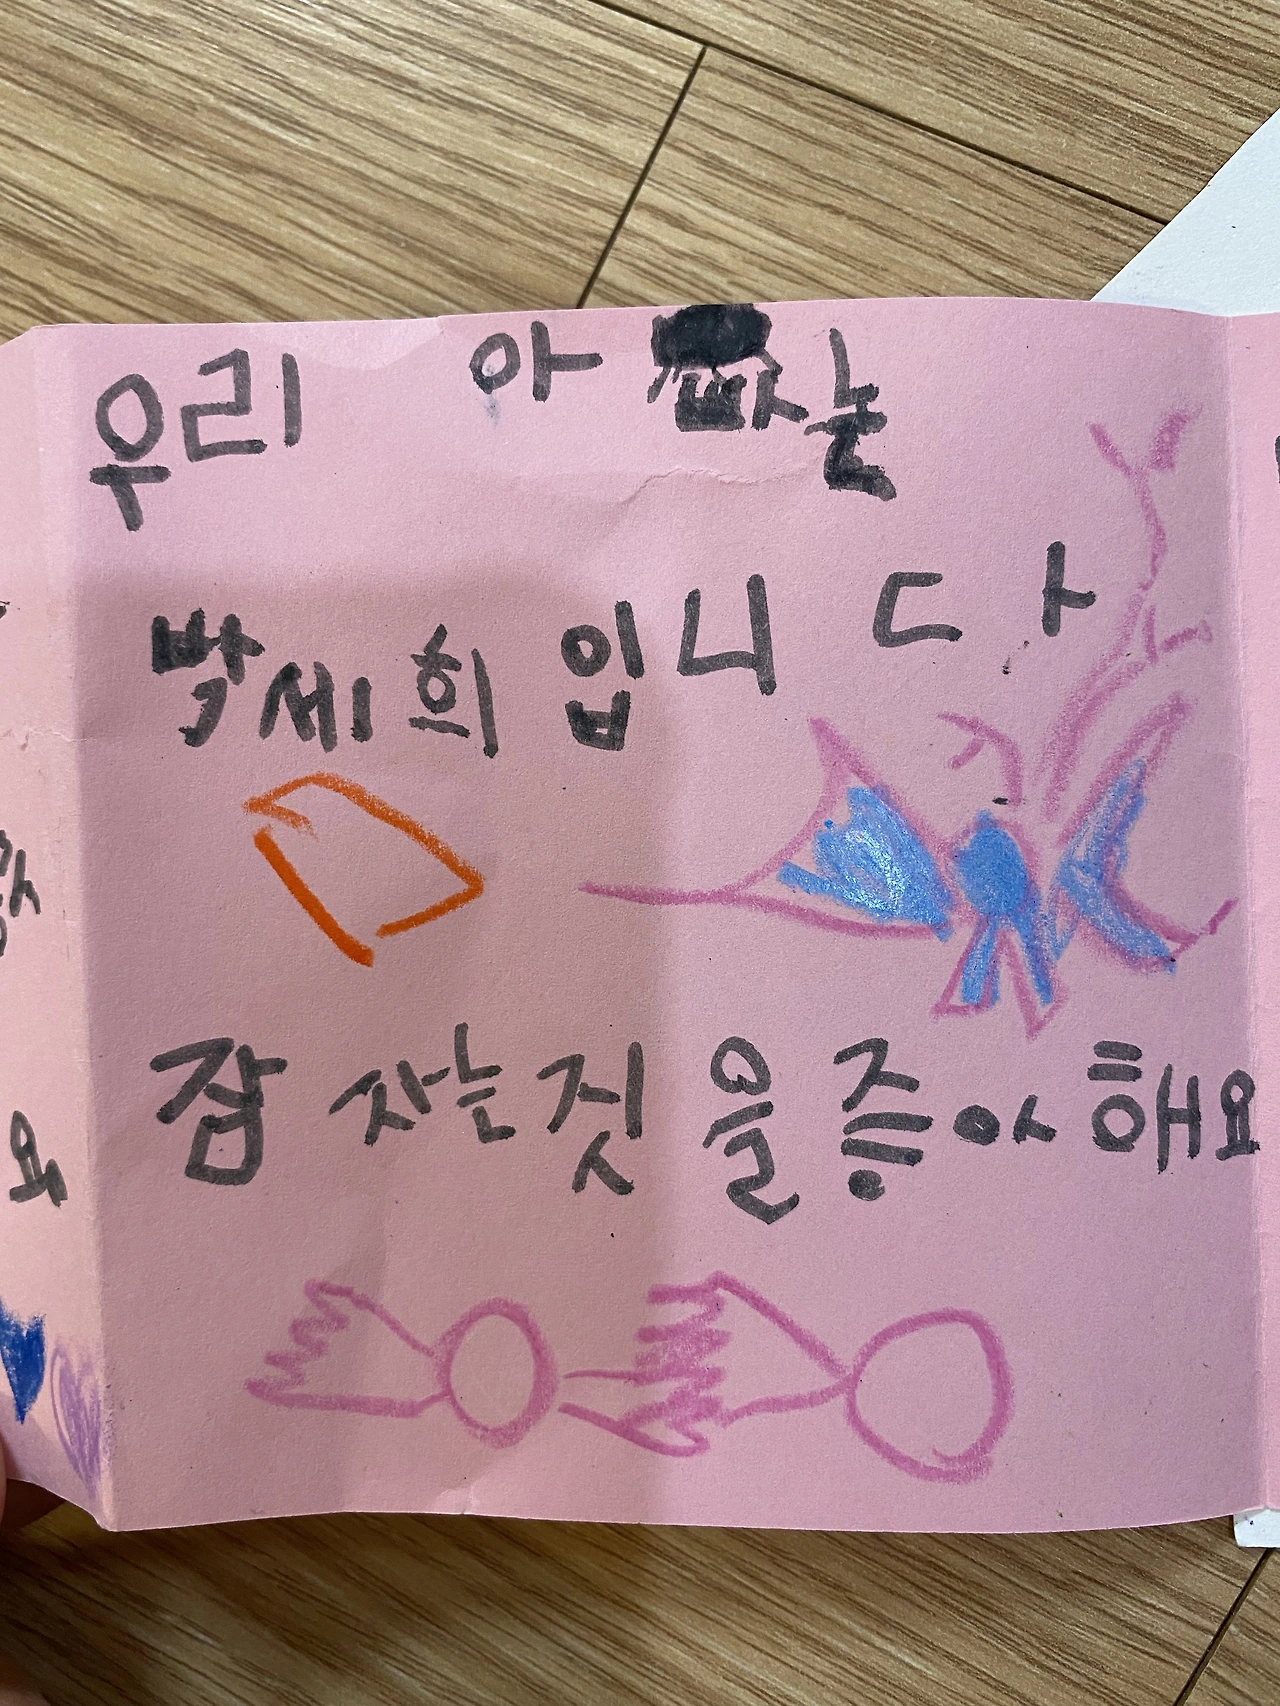 우리 아빠는
박세희입니다
잠 자는것을 좋아해요
요